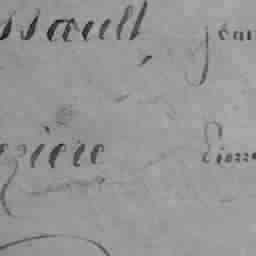 ssault jean
ezière Pierre